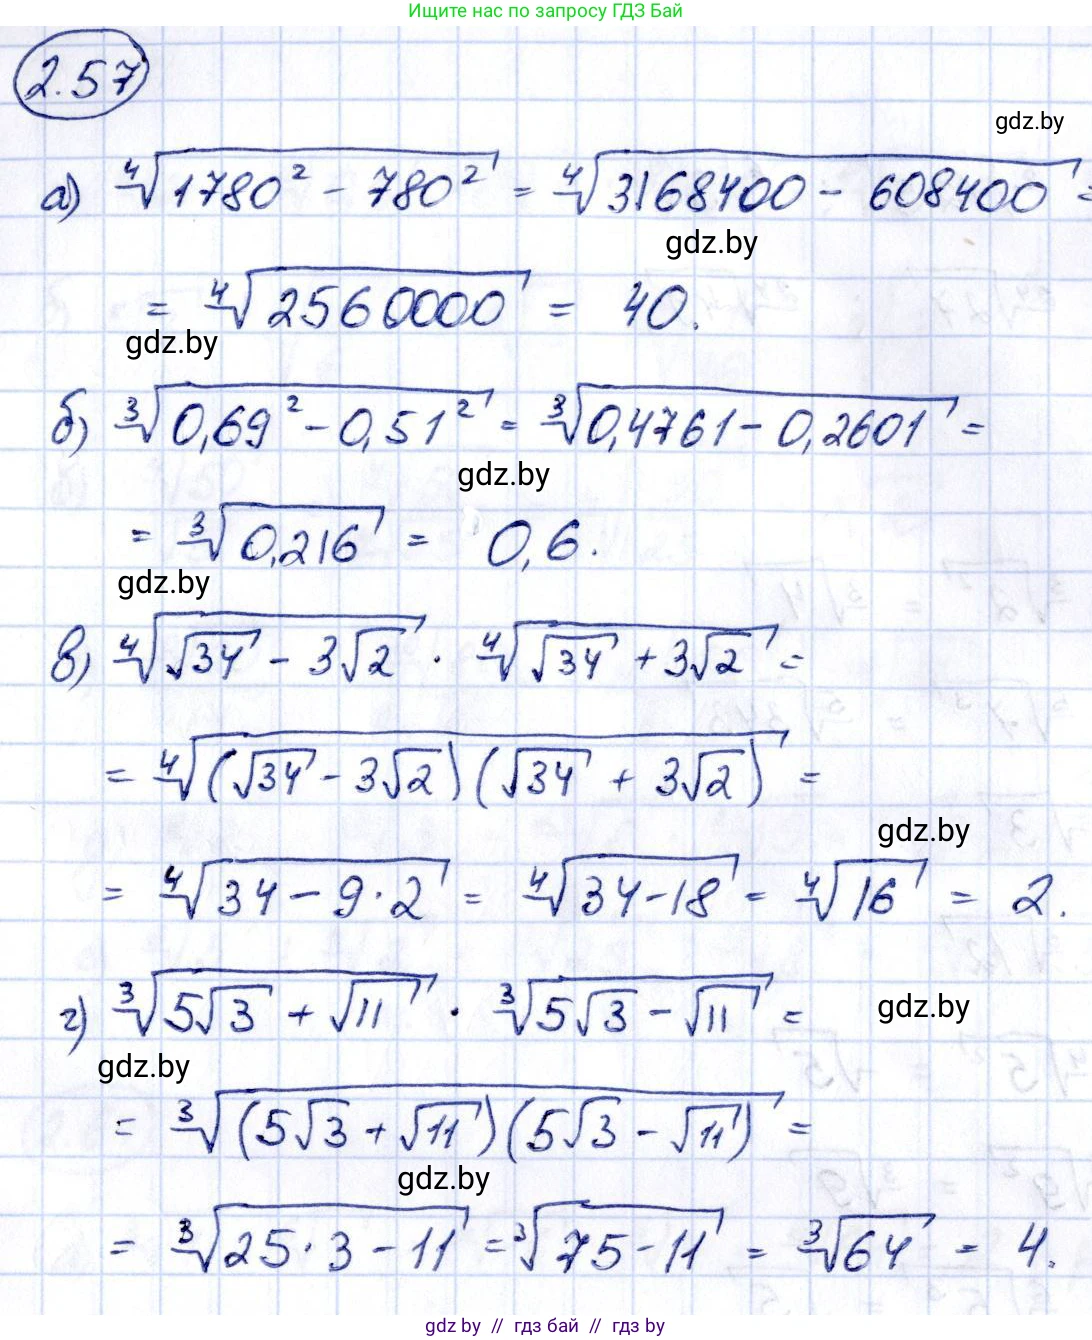 Ищите нас по запросу ГДЗ Бай
2.57
gdz.by
а) ⁴√(1780² - 780²) = ⁴√(3168400 - 608400) =
gdz.by
= ⁴√2560000 = 40.
gdz.by
б) ³√(0,69² - 0,51²) = ³√(0,4761 - 0,2601) =
gdz.by
= ³√0,216 = 0,6.
gdz.by
в) ⁴√(√34 - 3√2) · ⁴√(√34 + 3√2) =
= ⁴√((√34 - 3√2)(√34 + 3√2)) =
gdz.by
= ⁴√(34 - 9·2) = ⁴√(34-18) = ⁴√16 = 2.
г) ³√(5√3 + √11) · ³√(5√3 - √11) =
gdz.by
gdz.by
= ³√((5√3 + √11)(5√3 - √11)) =
gdz.by
= ³√(25·3 - 11) = ³√(75-11) = ³√64 = 4.
gdz.by // гдз бай // гдз by